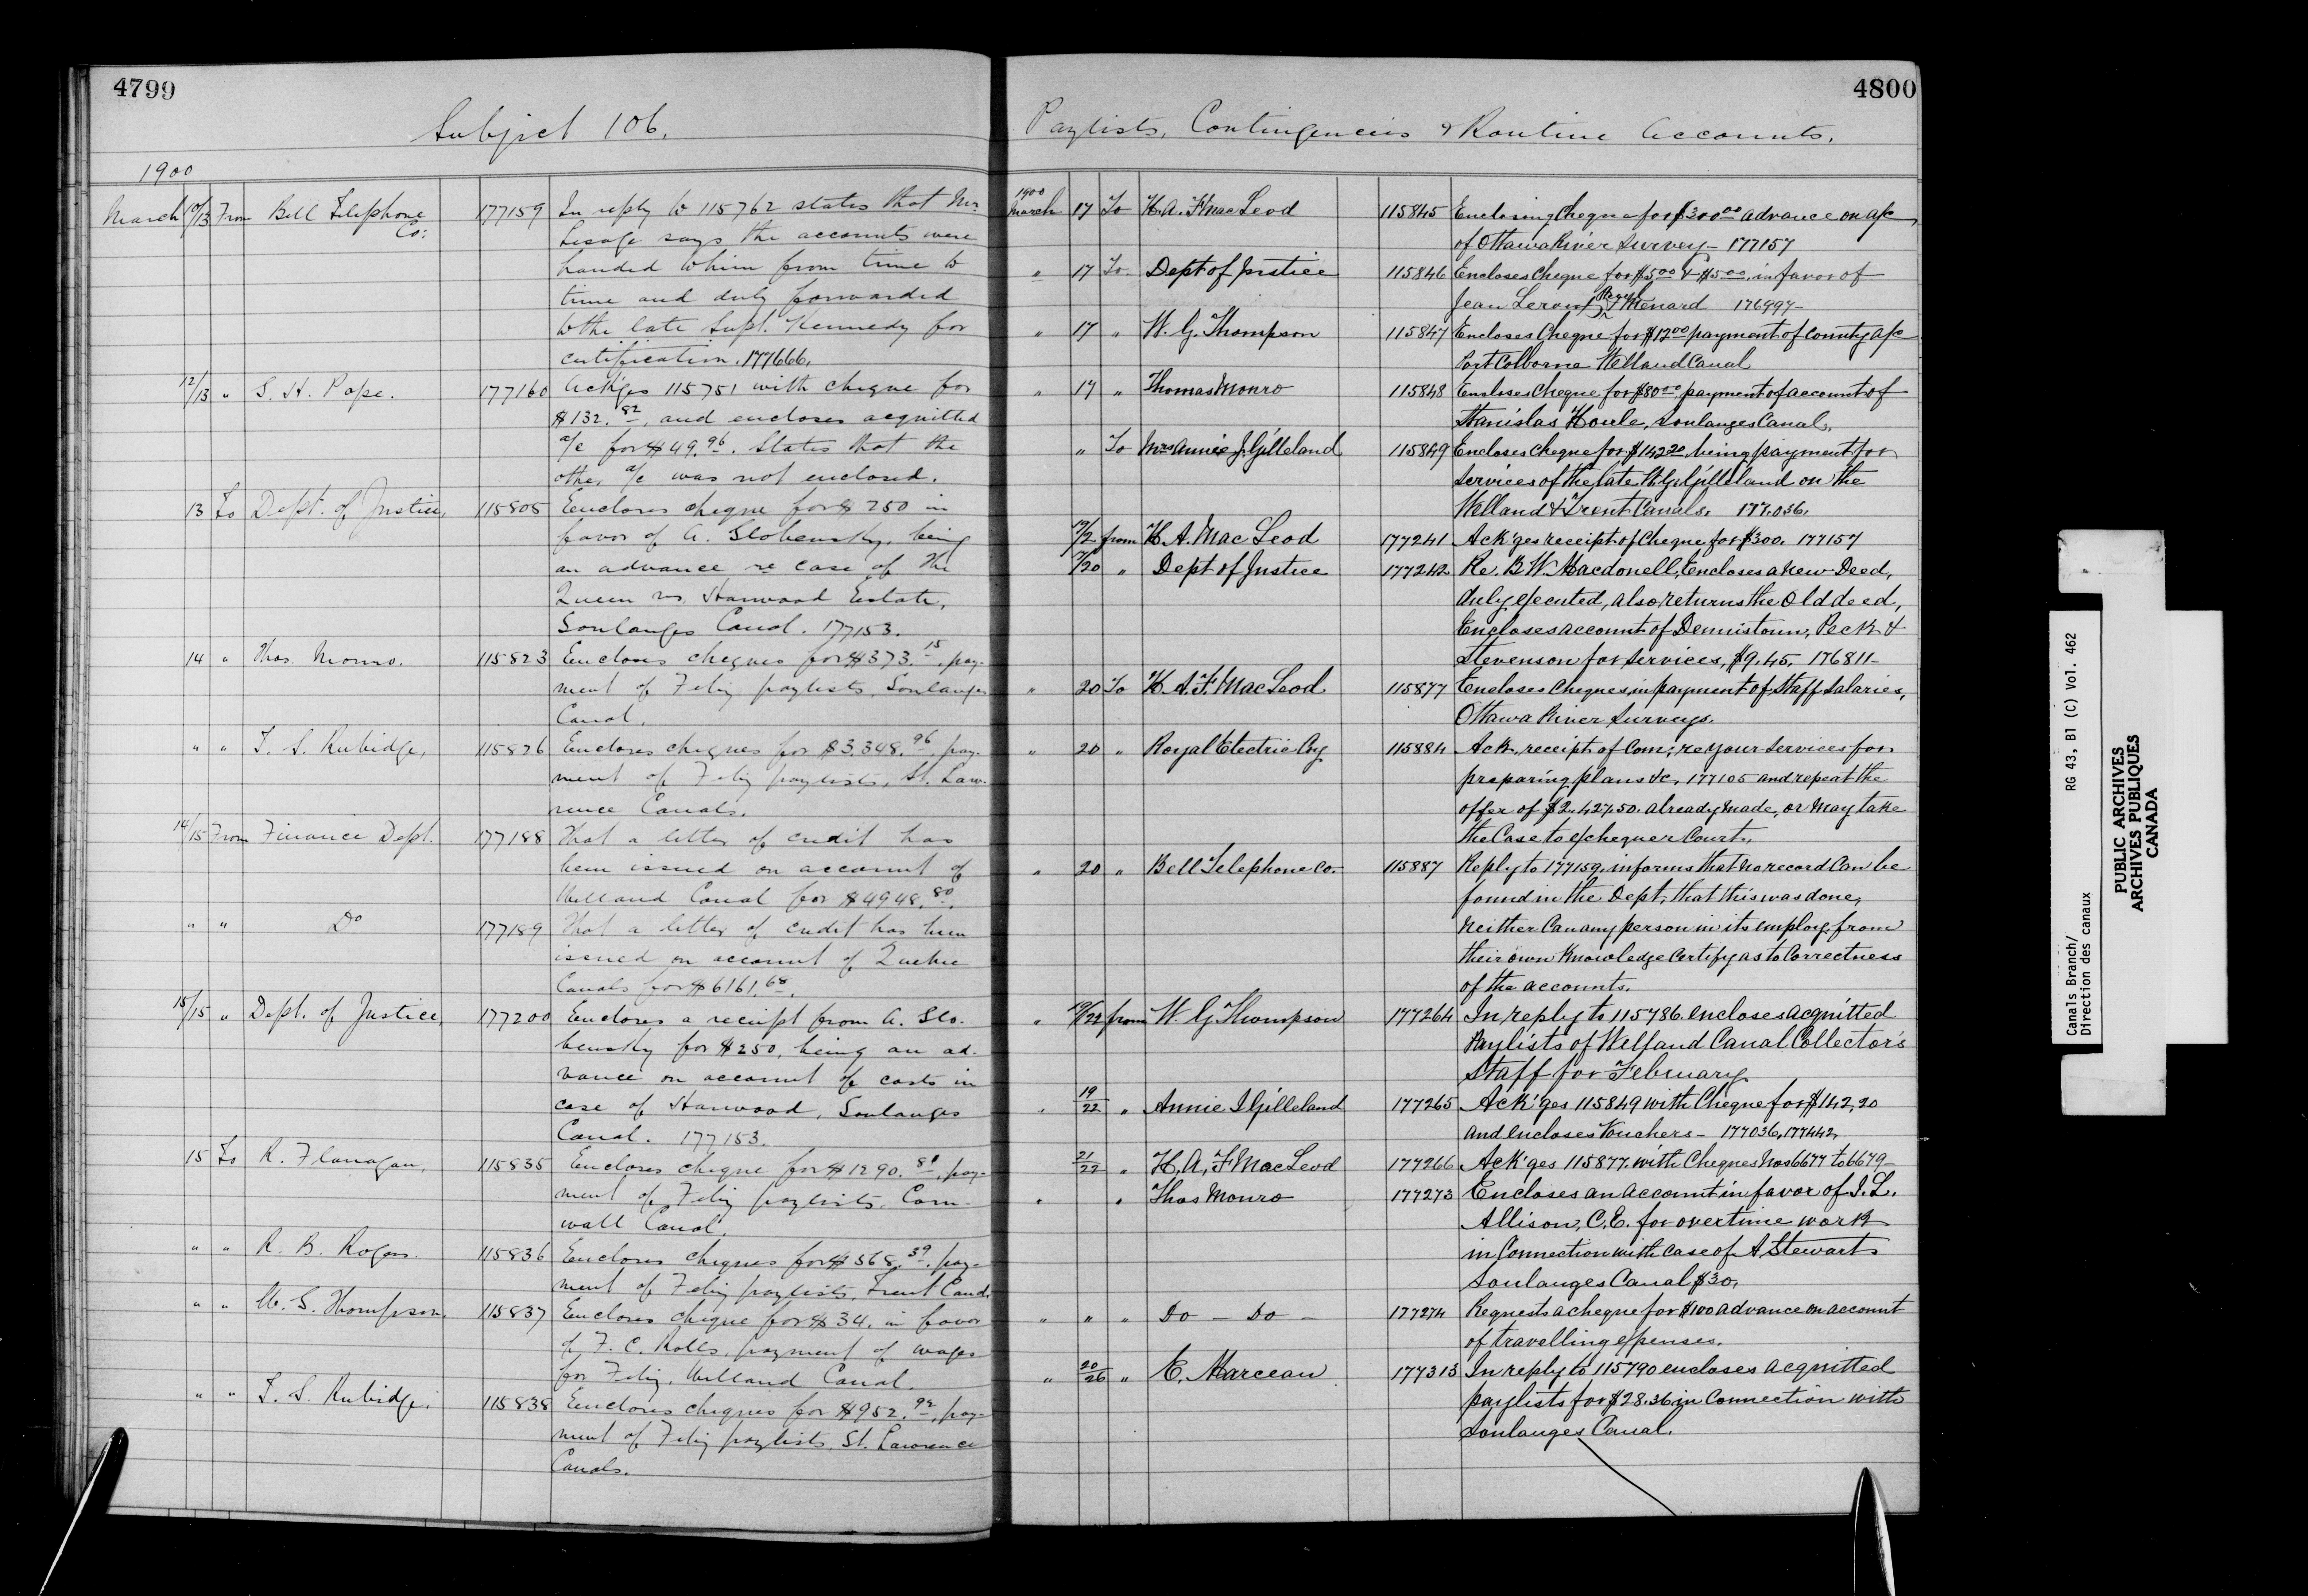 4799
Subject 106.
1900
March 10/13 From Bell Telephone Co: 177159 In reply to 115762 states that Mr.
Lesage says the accounts were
handed to him from time to
time and duly forwarded
to the late Supt. Kennedy for
certification. 177666.
12/13 " S. H. Pope. 177160 Ack'ges 115751 with cheque for
$132.82, and encloses acquitted
a/c for $49.96. States that the
other a/c was not enclosed.
13 To Dept. of Justice, 115805 Encloses cheque for $250 in
favor of A. Globensky, being
an advance re case of the
Queen vs. Harwood Estate,
Soulanges Canal. 177153.
14 " Thos. Monro. 115823 Encloses cheques for $373.15, pay-
ment of Feb'y paylists, Soulanges
Canal.
" " T. S. Rubidge, 115826 Encloses cheques for $3.348.96, pay-
ment of Feb'y paylists, St. Law-
rence Canals.
14/15 From Finance Dept. 177188 That a letter of credit has
been issued on account of
Welland Canal for $4948.80.
" " Do 177189 That a letter of credit has been
issued on account of Quebec
Canals for $6161.68.
15/15 " Dept. of Justice, 177200 Encloses a receipt from A. Glo-
bensky for $250, being an ad-
vance on account of costs in
case of Harwood, Soulanges
Canal. 177153.
15 To R. Flanagan, 115835 Encloses cheque for $1290.81, pay-
ment of Feb'y paylists, Corn-
wall Canal.
" " R. B. Rogers. 115836 Encloses cheques for $568.39, pay-
ment of Feb'y paylists, Trent Canal.
" " W. G. Thompson, 115837 Encloses cheque for $34. in favor
of F. C. Rolls, payment of wages
for Feb'y, Welland Canal.
" " T. S. Rubidge. 115838 Encloses cheques for $952.92, pay-
ment of Feb'y paylists, St. Lawrence
Canals.
4800
Paylists, Contingencies & Routine Accounts.
1900
March 17 To H. A. F. MacLeod 115845 Enclosing Cheque for $300.00 advance on a/c
of Ottawa River Survey – 177157
" 17 To Dept of Justice 115846 Encloses Cheque for $5.00 & $5.00, in favor of
Jean Leroux & Menard 176997 –
" 17 " W. G. Thompson 115847 Encloses Cheque for $12.00 payment of County a/c
Port Colborne Welland Canal
" 17 " Thomas Monro 115848 Encloses Cheque for $80.00 payment of account of
Stanislas Houle, Soulanges Canal.
" To Mrs Annie J. Gilleland 115849 Encloses Cheque for $142.20, being payment for
Services of the late W. G. Gilleland on the
Welland & Trent Canals. 177.036.
from H. A. MacLeod 177241 Ack'ges receipt of Cheque for $300. 177157
" Dept of Justice 177242 Re. B. W. Macdonell, Encloses a new Deed,
duly executed, also returns the Old deed,
Encloses account of Dennistoun, Peck &
Stevenson for Services, $9.45, 176811 –
" 20 To H. A. F. MacLeod 115877 Encloses Cheques in payment of Staff Salaries,
Ottawa River Surveys.
" 20 " Royal Electric Coy 115884 Ack, receipt of Com; re your Services for
preparing plans &c, 177105 and repeat the
offer of $2.427.50. already made, or may take
the Case to Exchequer Court,
" 20 " Bell Telephone Co. 115887 Reply to 177159, informs that no record Can be
found in the Dept, that this was done,
Neither Can any person in its employ, from
their own Knowledge Certify as to Correctness
of the accounts.
" 19/22 from W. G. Thompson 177264 In reply to 115786. encloses acquitted
Paylists of Welland Canal Collector's
Staff for February
" 19/22 " Annie J Gilleland 177265 Ack'ges 115849 with Cheque for $142,20
and encloses Vouchers – 177036, 177442,
21/22 " H. A. F. MacLeod 177266 Ack'ges 115877, with Cheques Nos 6677 to 6679 –
" " Thos Monro 177273 Encloses an account in favor of J. L.
Allison, C. E. for overtime work
in Connection with Case of A. Stewart
Soulanges Canal $30,
" " " Do – Do – 177274 Requests a cheque for $100 advance on account
of travelling expenses.
" 20/26 " E. Marceau 177313 In reply to 115790 encloses acquitted
paylists for $28.36 in Connection with
Soulanges Canal.
Canals Branch/ RG 43, B1 (C) Vol. 462
Direction des canaux
PUBLIC ARCHIVES
ARCHIVES PUBLIQUES
CANADA